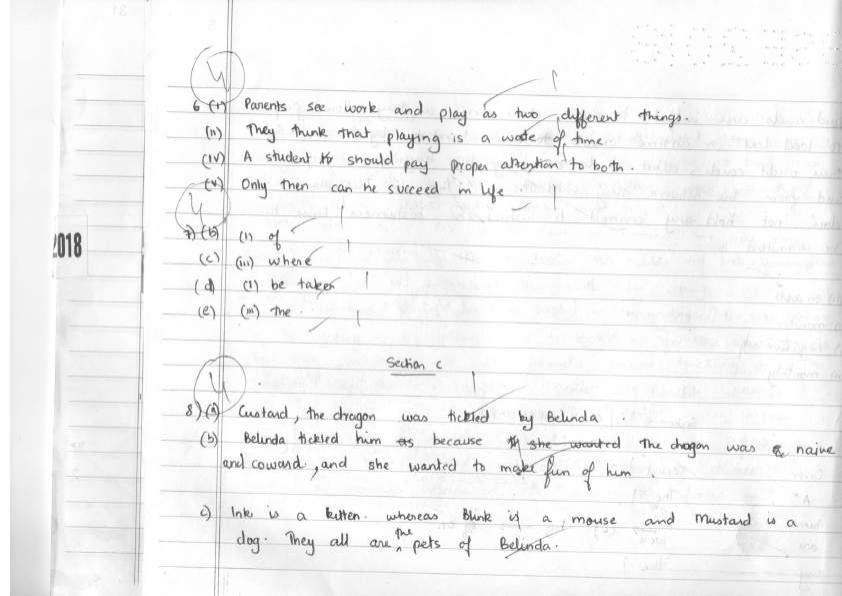 4
6 (i) Parents see work and play as two different things. 1
(ii) They think that playing is a waste of time
(iv) A student should pay proper attention to both.
(v) Only then can he succeed in life. 1
4
2018
7) (b) (i) of 1
(c) (iii) where 1
(d) (i) be taken 1
(e) (iii) the. 1
Section C
4
8) (a) Custard, the dragon was tickled by Belinda. 1
(b) Belinda tickled him as because she wanted The dragon was naive
and coward, and she wanted to make fun of him.
c) Ink is a kitten. whereas Blink is a mouse and Mustard is a
dog. They all are the pets of Belinda.